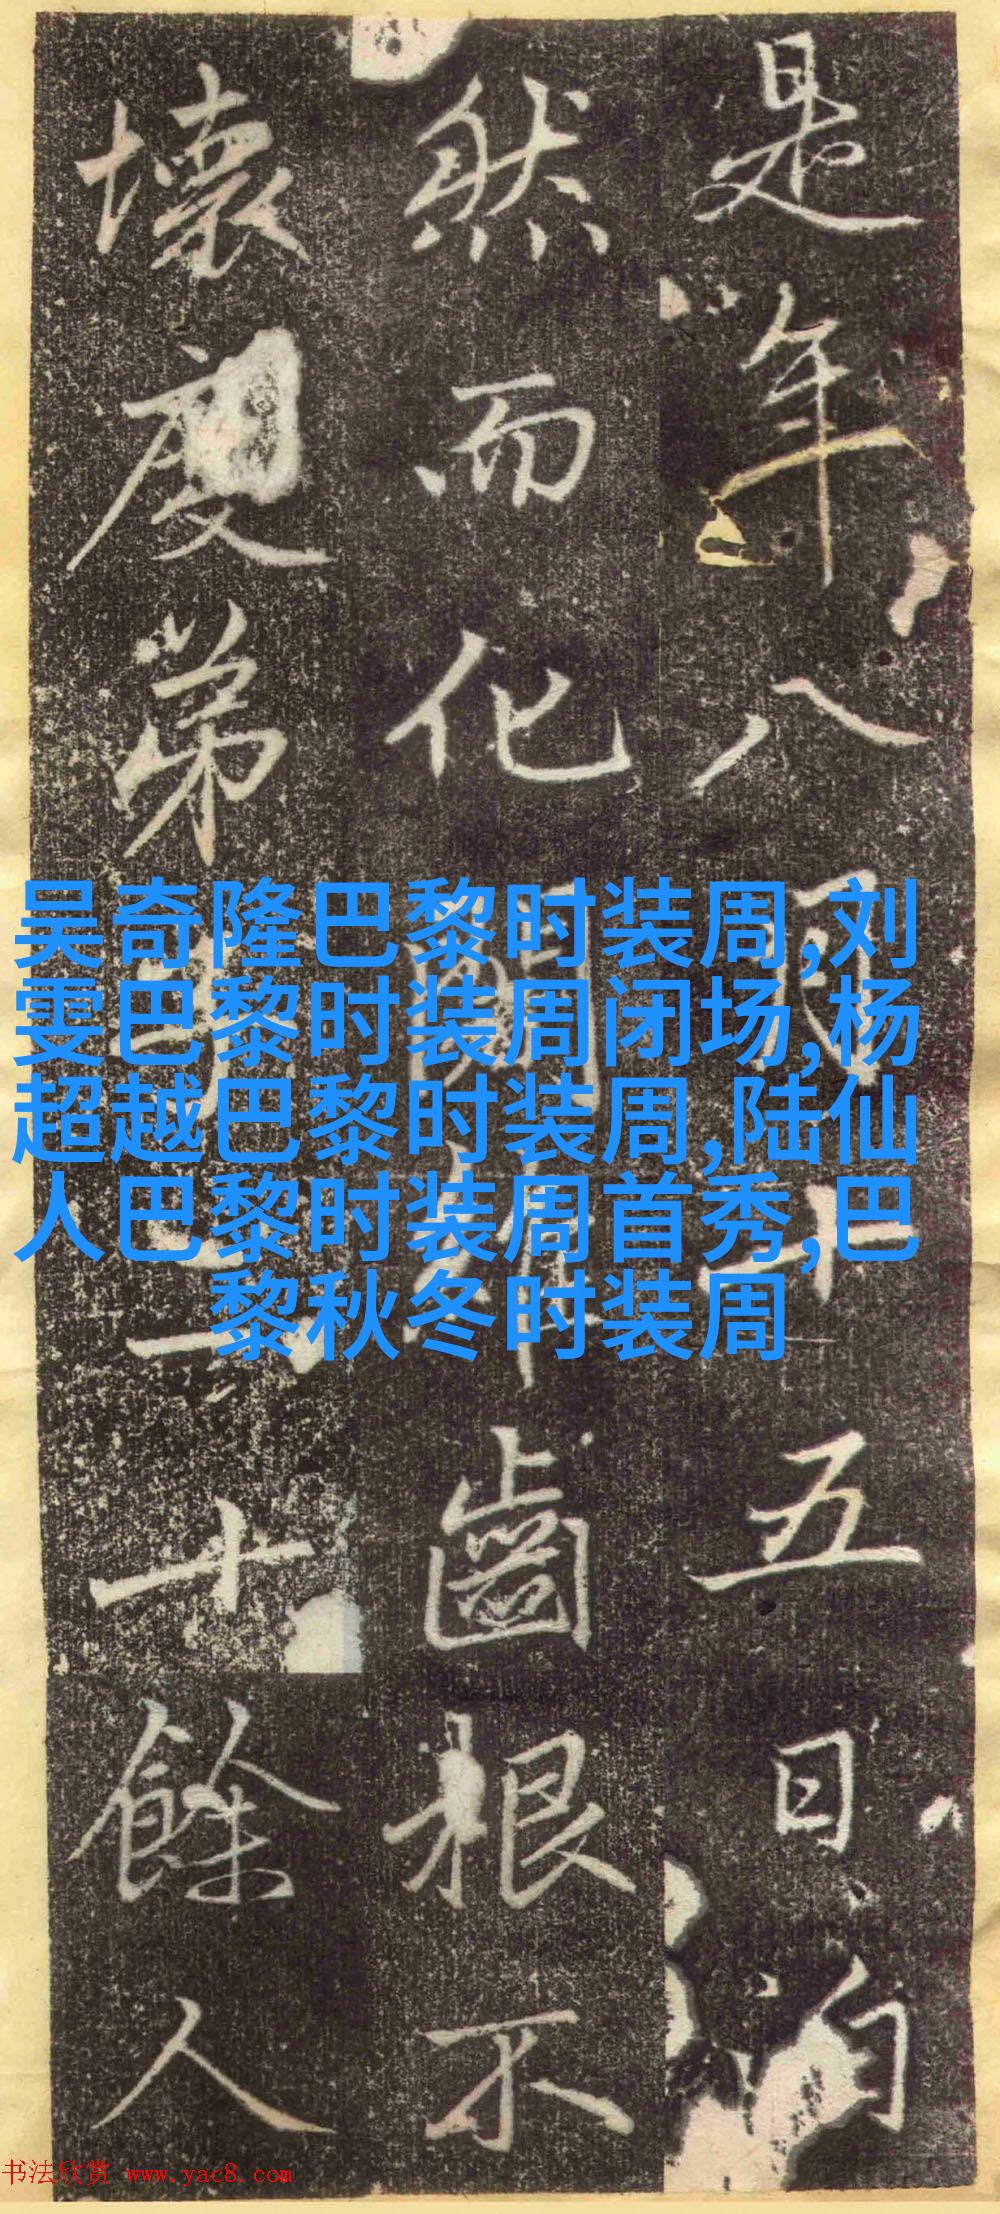 是年八月十五日自
然而化閉户齒根不
壞慶弟等十餘人
吴奇隆巴黎时装周,刘
雯巴黎时装周闭场,杨
超越巴黎时装周,陆仙
人巴黎时装周首秀,巴
黎秋冬时装周
书法欣赏 www.yac8.com